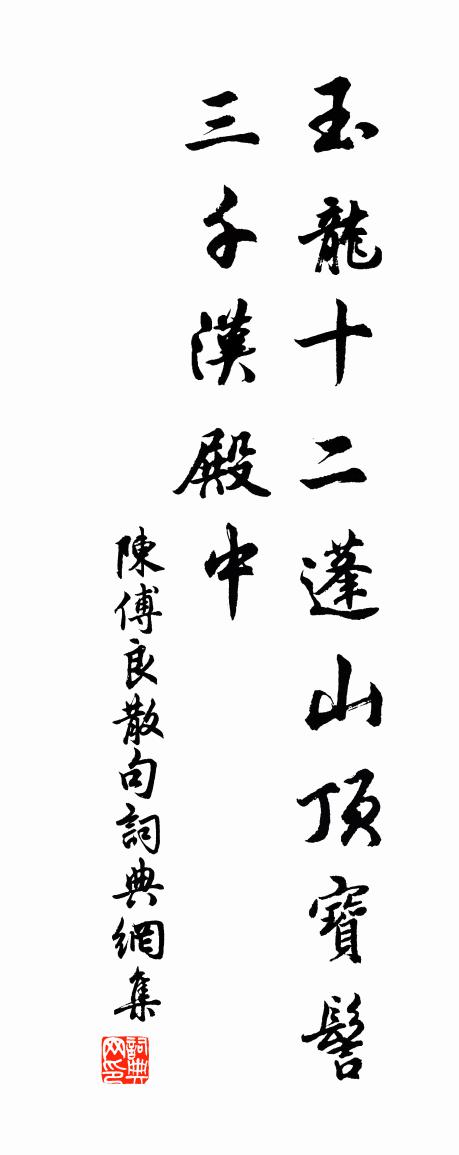 玉龍十二蓬山頂寶髻
三千漢殿中
陳傅良散句詞典網集
詞典网印